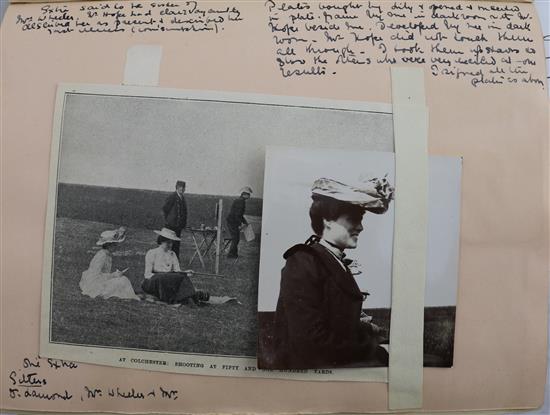 Extra said to be sister of
Mrs Wheeler. Mr Hope had clairvoyantly
described her as present & described her
last illness (consumption).
Plates bought by & opened & inserted
in plate frame by me in darkroom with Mr
Hope beside me. Developed by me in dark
room. Mr Hope did not touch them
all through. I took them upstairs to
show the sitters who were very excited at the
results. I signed all the
plates as above.
AT COLCHESTER: SHOOTING AT FIFTY AND ONE HUNDRED YARDS.
One Extra
Sitters
Mrs Wheeler & Mr.